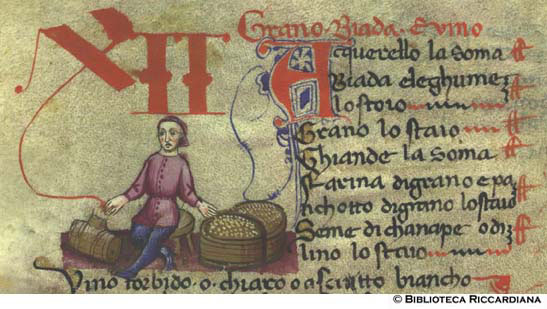 XII
Grano · Biada · E vino
Acquerello la soma
Biada eleghume
lo staio
Grano lo staio
Ghiande la soma
Farina digrano e pa
nchotto digrano lo staio
Seme di chanape o di
lino lo staio
Vino torbido · o · chiaro o asciutto biancho
© BIBLIOTECA RICCARDIANA